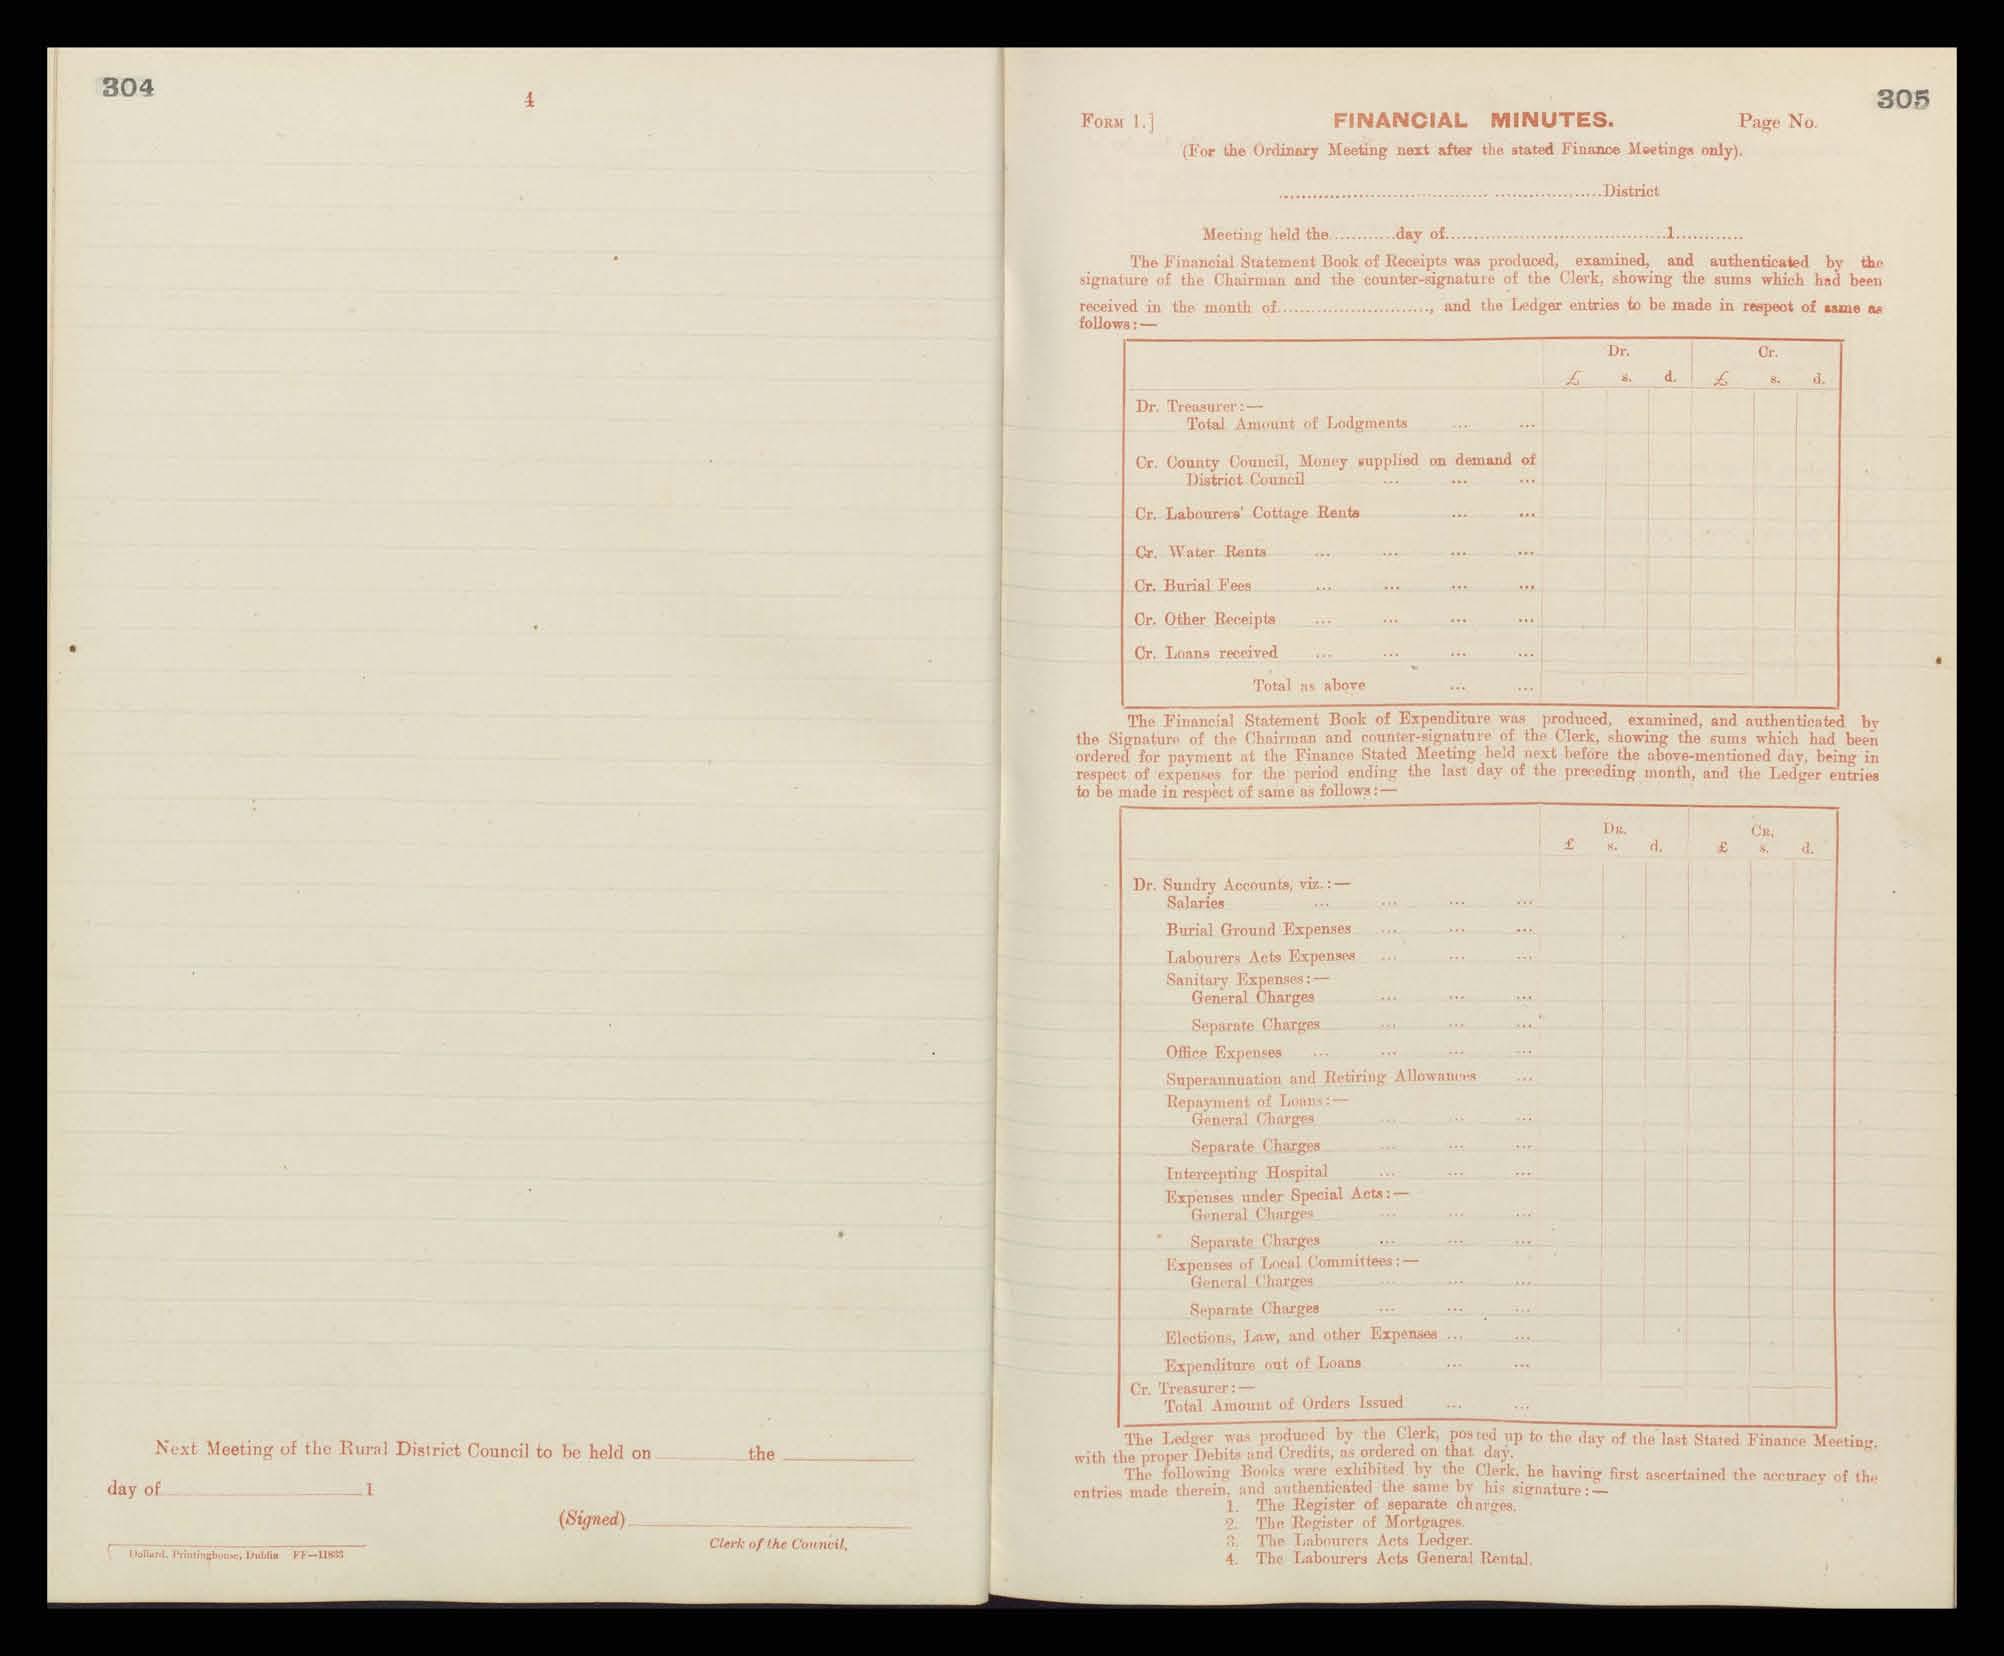 304
4
Next Meeting of the Rural District Council to be held on the
day of 1
(Signed)
Clerk of the Council,
Dollard, Printinghouse, Dublin FF—11833
305
FORM 1.] FINANCIAL MINUTES. Page No.
(For the Ordinary Meeting next after the stated Finance Meetings only).
............................................................District
Meeting held the............day of........................................1............
The Financial Statement Book of Receipts was produced, examined, and authenticated by the
signature of the Chairman and the counter-signature of the Clerk, showing the sums which had been
received in the month of..........................., and the Ledger entries to be made in respect of same as
follows:—
Dr. Cr.
£ s. d. £ s. d.
Dr. Treasurer:—
Total Amount of Lodgments ... ...
Cr. County Council, Money supplied on demand of
District Council ... ... ...
Cr. Labourers' Cottage Rents ... ...
Cr. Water Rents ... ... ... ...
Cr. Burial Fees ... ... ... ...
Cr. Other Receipts ... ... ... ...
Cr. Loans received ... ... ... ...
Total as above ... ...
The Financial Statement Book of Expenditure was produced, examined, and authenticated by
the Signature of the Chairman and counter-signature of the Clerk, showing the sums which had been
ordered for payment at the Finance Stated Meeting held next before the above-mentioned day, being in
respect of expenses for the period ending the last day of the preceding month, and the Ledger entries
to be made in respect of same as follows:—
DR. CR.
£ s. d. £ s. d.
Dr. Sundry Accounts, viz.:—
Salaries ... ... ... ...
Burial Ground Expenses ... ... ...
Labourers Acts Expenses ... ... ...
Sanitary Expenses:—
General Charges ... ... ...
Separate Charges ... ... ...
Office Expenses ... ... ... ...
Superannuation and Retiring Allowances ...
Repayment of Loans:—
General Charges ... ... ...
Separate Charges ... ... ...
Intercepting Hospital ... ... ...
Expenses under Special Acts:—
General Charges ... ... ...
Separate Charges ... ... ...
Expenses of Local Committees:—
General Charges ... ... ...
Separate Charges ... ... ...
Elections, Law, and other Expenses ... ...
Expenditure out of Loans ... ...
Cr. Treasurer:—
Total Amount of Orders Issued ... ...
The Ledger was produced by the Clerk, posted up to the day of the last Stated Finance Meeting,
with the proper Debits and Credits, as ordered on that day.
The following Books were exhibited by the Clerk, he having first ascertained the accuracy of the
entries made therein, and authenticated the same by his signature:—
1. The Register of separate charges.
2. The Register of Mortgages.
3. The Labourers Acts Ledger.
4. The Labourers Acts General Rental.